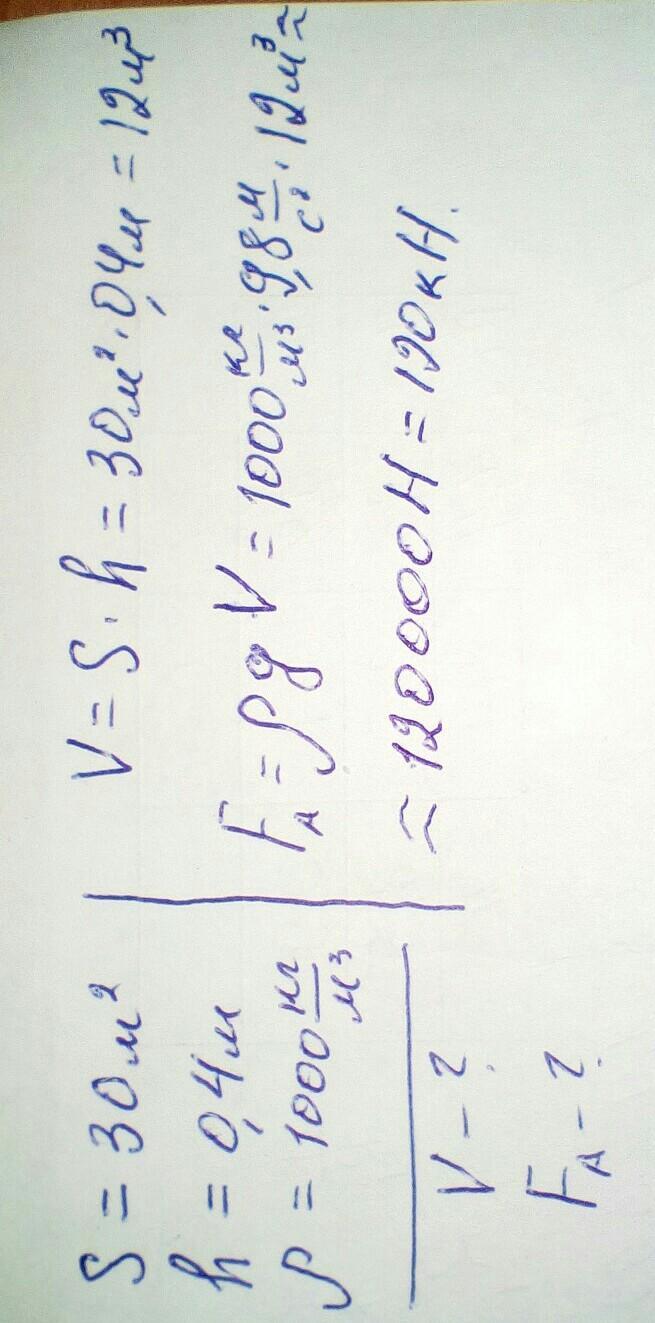 S = 30 м²
h = 0,4 м
ρ = 1000 кг/м³
V - ?
Fₐ - ?
V = S · h = 30 м² · 0,4 м = 12 м³
Fₐ = ρg V = 1000 кг/м³ · 9,8 м/с² · 12 м³ ≈
≈ 120000 Н = 120 кН.